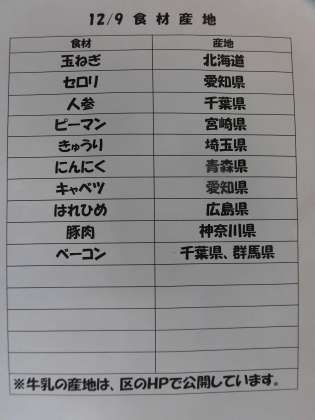 12/9 食材産地
食材 産地
玉ねぎ 北海道
セロリ 愛知県
人参 千葉県
ピーマン 宮崎県
きゅうり 埼玉県
にんにく 青森県
キャベツ 愛知県
はれひめ 広島県
豚肉 神奈川県
ベーコン 千葉県、群馬県
※牛乳の産地は、区のHPで公開しています。